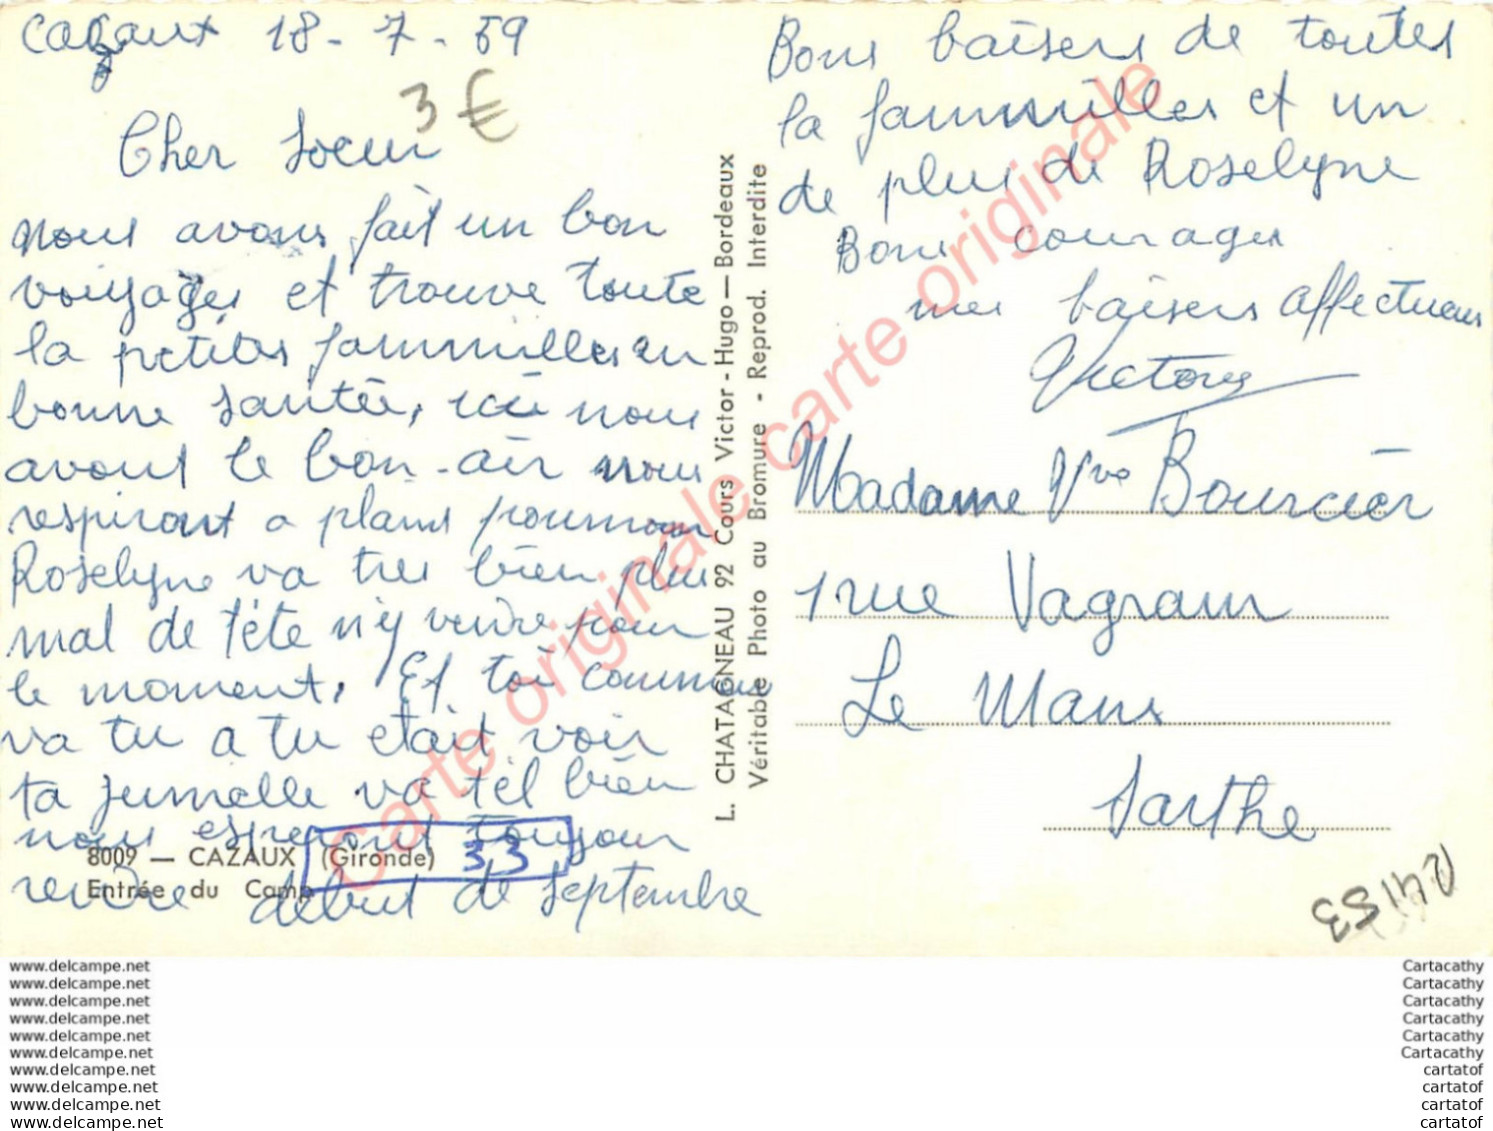 Cazaux 18-7-59
3 €
Cher Soeur
nous avons fait un bon
voyages et trouve toute
la petites fammilles en
bonne santée, ici nous
avont le bon-air nous
respiront a plains poumon
Roselyne va tres bien plus
mal de tête n'y venire pour
le moment. Et toi comment
va tu a tu etait voir
ta jumelle va t'el bien
nous esperont toujour
revire debut de septembre
8009 — CAZAUX (Gironde) 33
Entrée du Camp
L. CHATAGNEAU 92 Cours Victor-Hugo — Bordeaux
Véritable Photo au Bromure - Reprod. Interdite
Bons baisers de toutes
la fammilles et un
de plus de Roselyne
Bons courages
mes baisers affectueux
Madame Vve Bourcier
1 rue Vagram
Le Mans
Sarthe
Carte originale carte originale carte originale
www.delcampe.net
www.delcampe.net
www.delcampe.net
www.delcampe.net
www.delcampe.net
www.delcampe.net
www.delcampe.net
www.delcampe.net
www.delcampe.net
www.delcampe.net
Cartacathy
Cartacathy
Cartacathy
Cartacathy
Cartacathy
Cartacathy
cartatof
cartatof
cartatof
cartatof